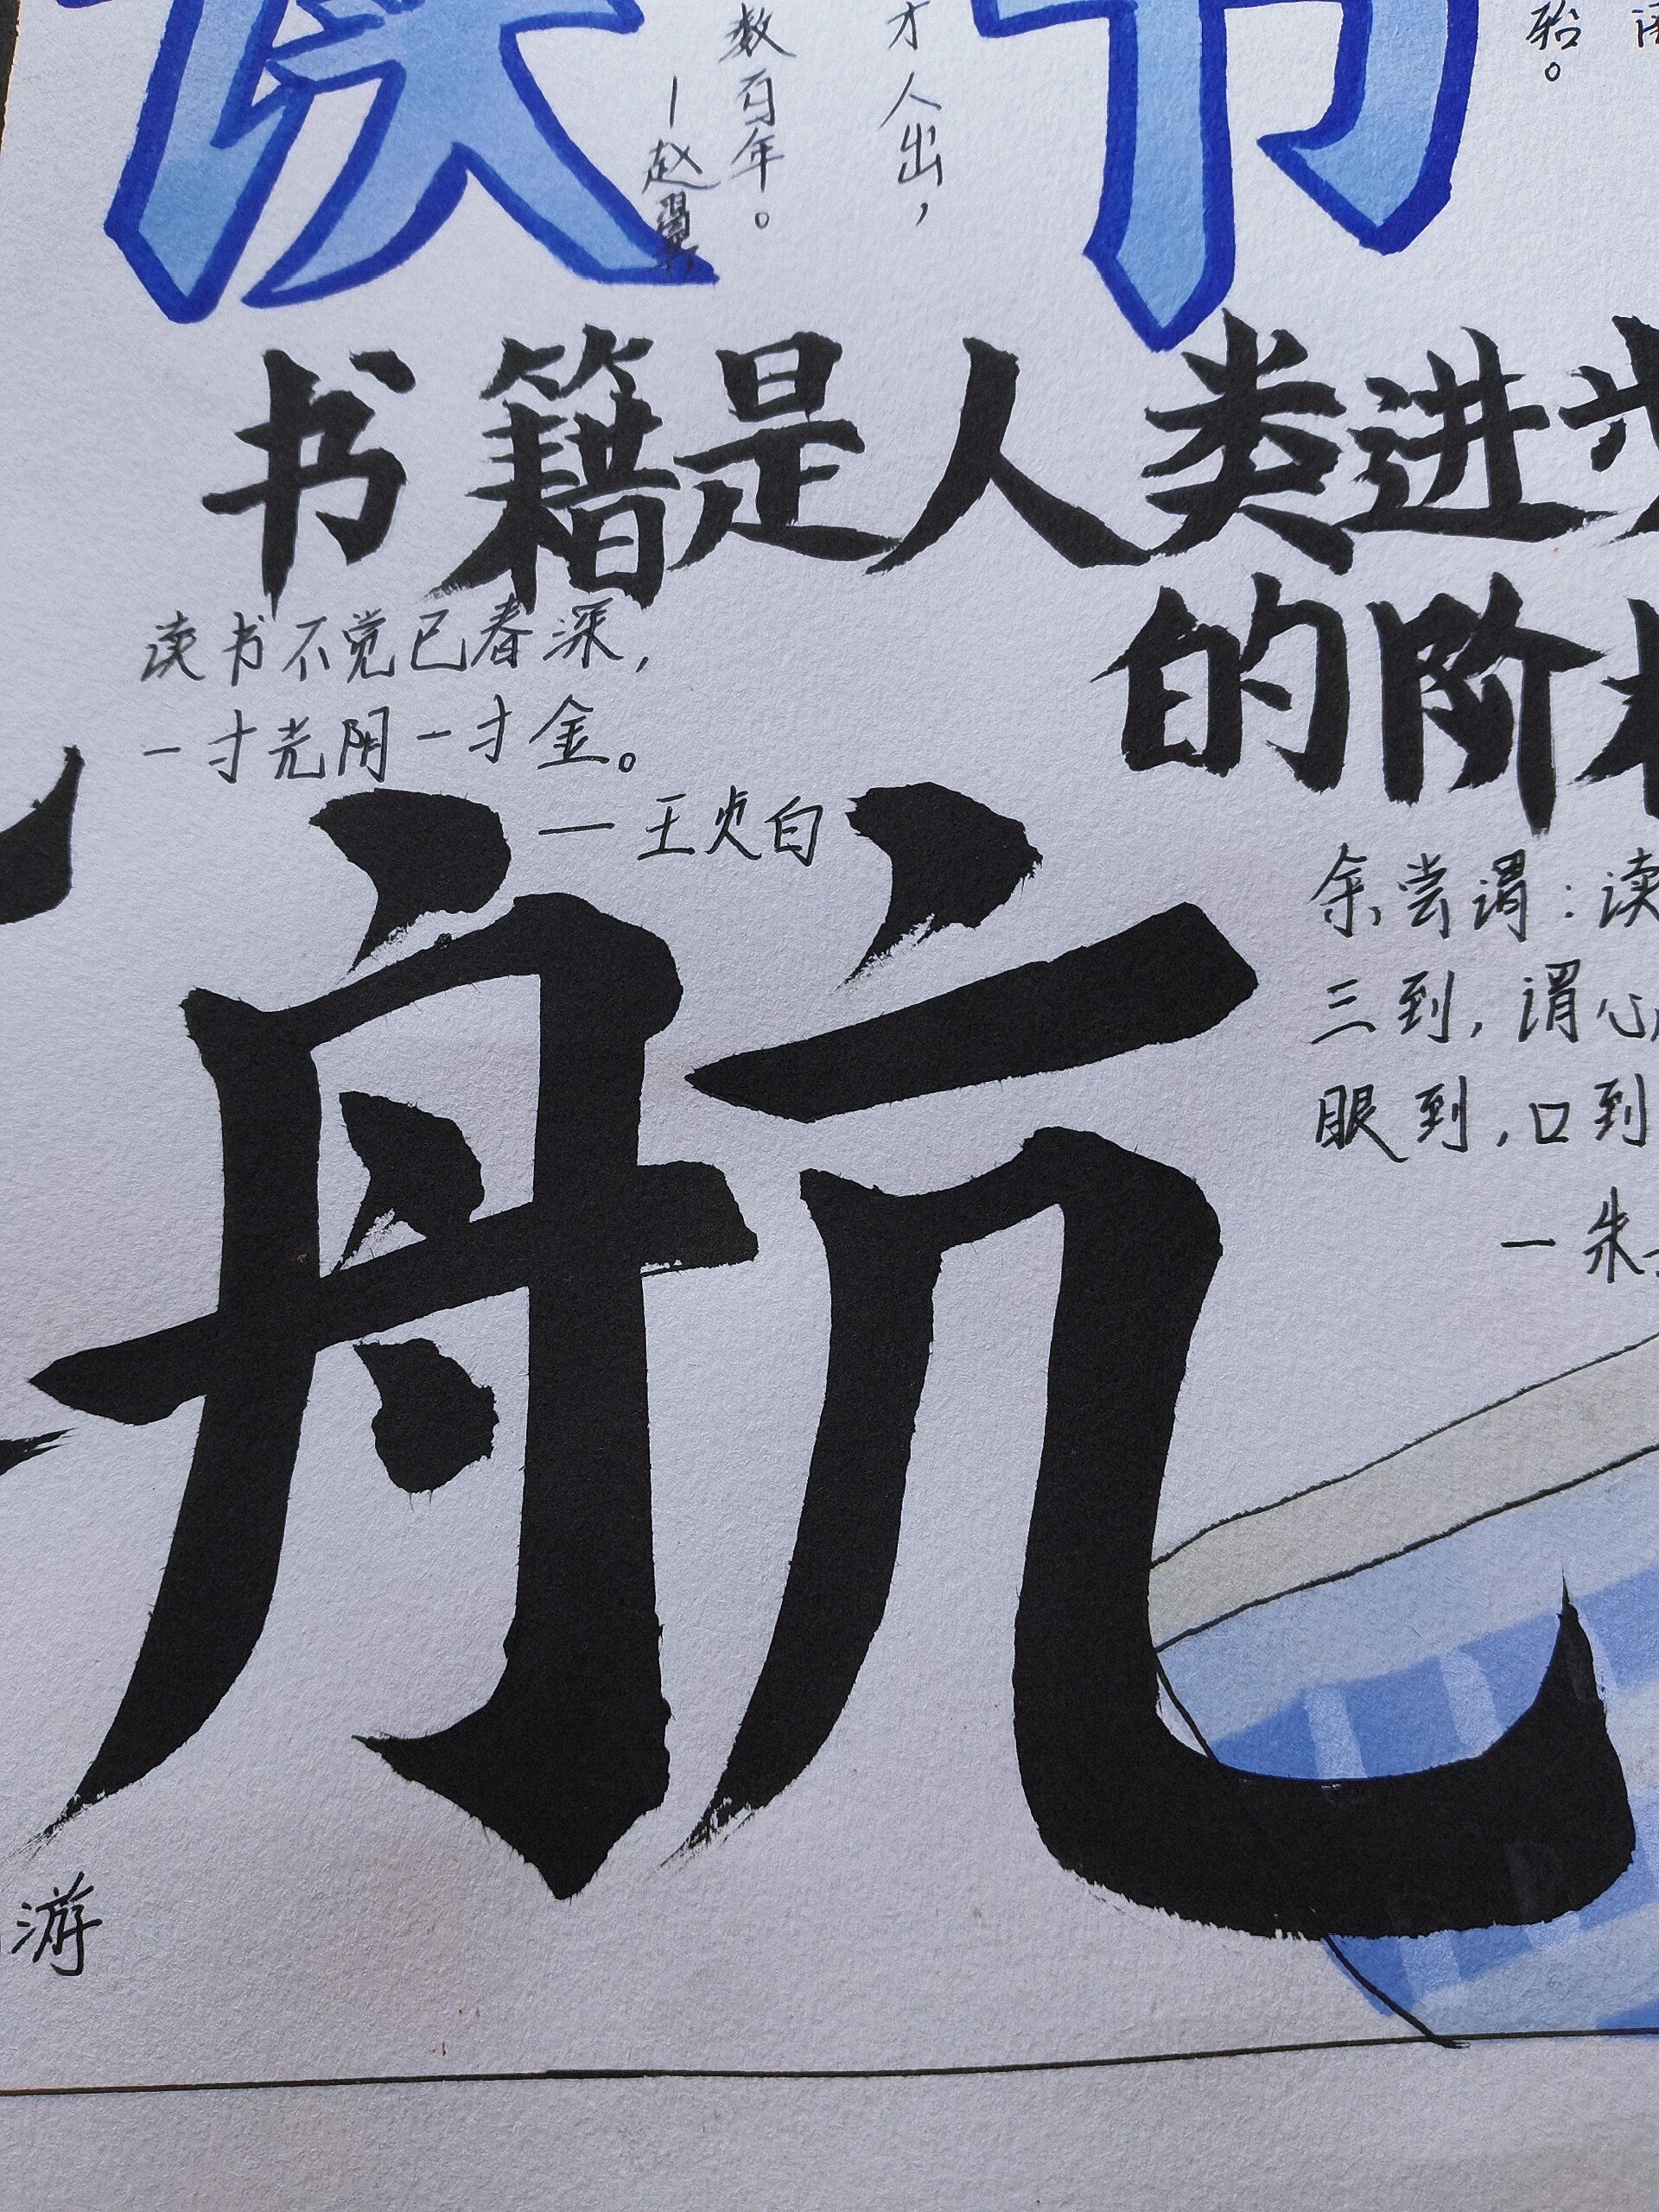 读书
才人出，
数百年。
—赵翼
书籍是人类进步
的阶
读书不觉已春深，
一寸光阴一寸金。
—王贞白
余尝谓：读
三到，谓心
眼到，口到
—朱
航
游